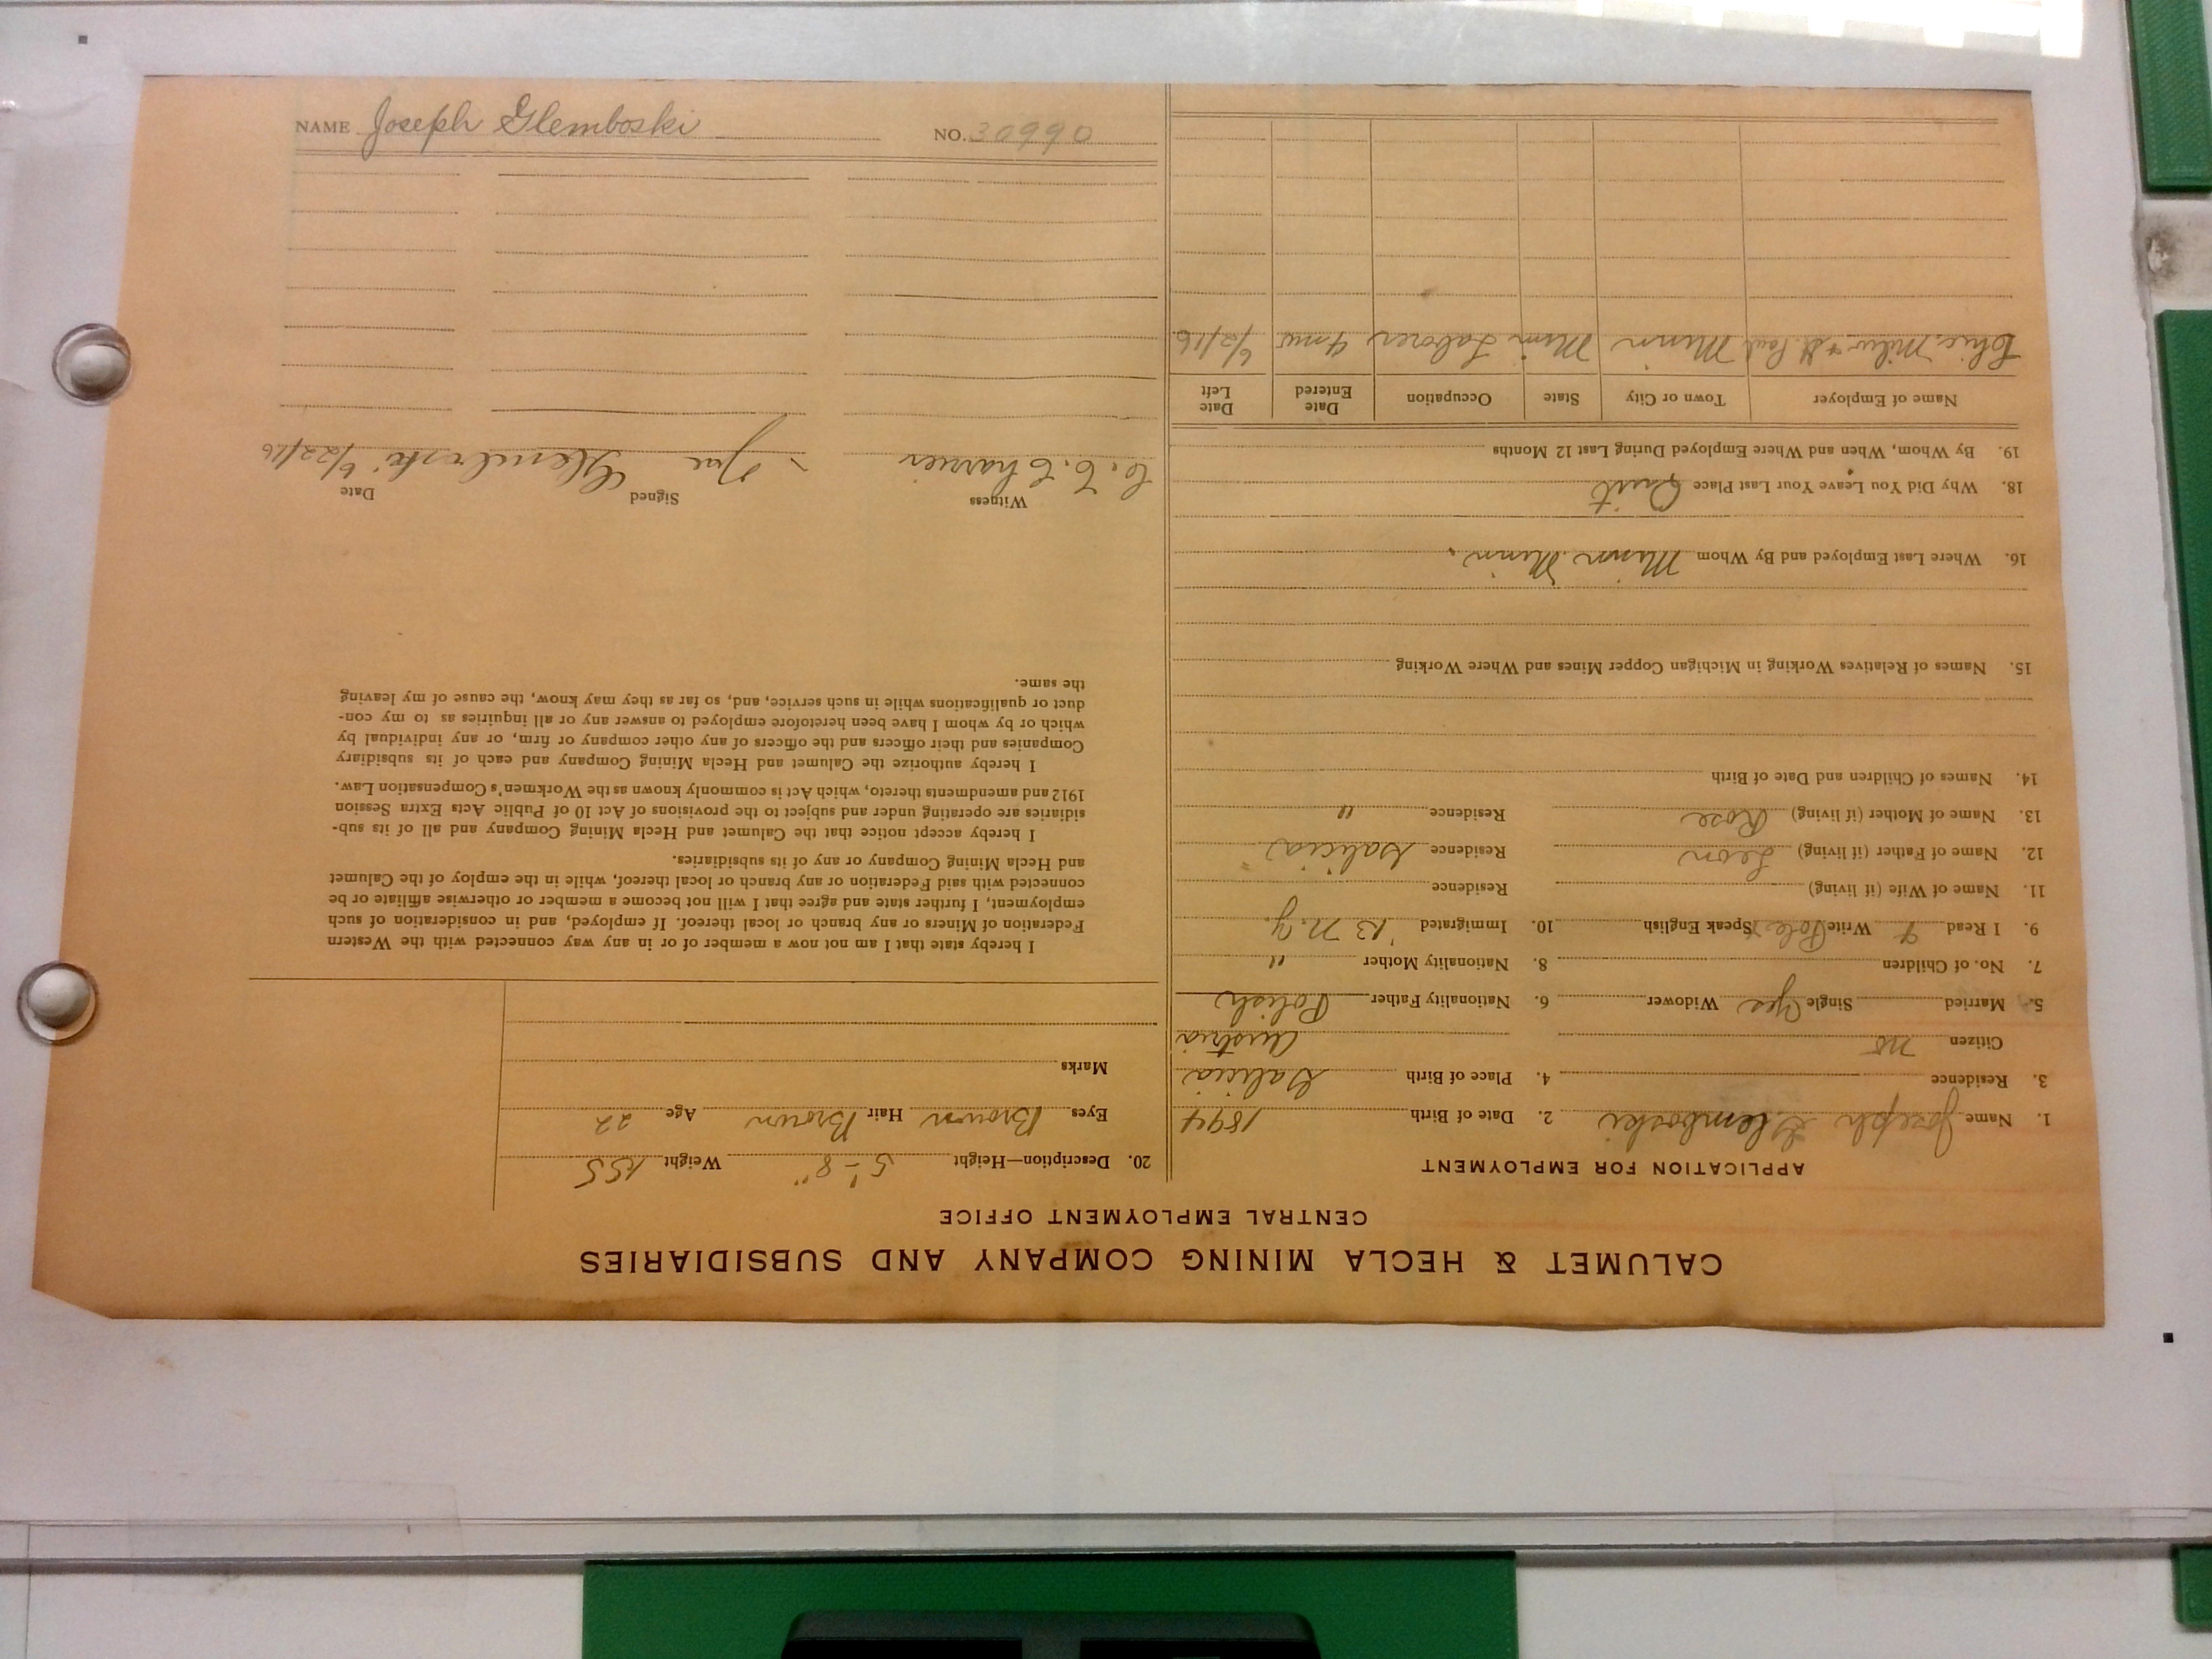 CALUMET & HECLA MINING COMPANY AND SUBSIDIARIES
CENTRAL EMPLOYMENT OFFICE
APPLICATION FOR EMPLOYMENT
1. Name Joseph Glemboski 2. Date of Birth 1894
3. Residence 4. Place of Birth Galicia
Citizen no Austria
5. Married Single Yes Widower 6. Nationality Father Polish
7. No. of Children 8. Nationality Mother "
9. I Read Write Pole Speak English 10. Immigrated '13 N.Y.
11. Name of Wife (if living) Residence
12. Name of Father (if living) Leon Residence Galicia
13. Name of Mother (if living) Rose Residence "
14. Names of Children and Date of Birth
15. Names of Relatives Working in Michigan Copper Mines and Where Working
16. Where Last Employed and By Whom Minn Minn.
18. Why Did You Leave Your Last Place Quit
19. By Whom, When and Where Employed During Last 12 Months
Name of Employer Town or City State Occupation Date Entered Date Left
Milw & St. Paul Minn Minn Laborer 4 mos 6/2/16
20. Description—Height 5'-8" Weight 155
Eyes Brown Hair Brown Age 22
Marks
I hereby state that I am not now a member of or in any way connected with the Western
Federation of Miners or any branch or local thereof. If employed, and in consideration of such
employment, I further state and agree that I will not become a member or otherwise affiliate or be
connected with said Federation or any branch or local thereof, while in the employ of the Calumet
and Hecla Mining Company or any of its subsidiaries.
I hereby accept notice that the Calumet and Hecla Mining Company and all of its sub-
sidiaries are operating under and subject to the provisions of Act 10 of Public Acts Extra Session
1912 and amendments thereto, which Act is commonly known as the Workmen's Compensation Law.
I hereby authorize the Calumet and Hecla Mining Company and each of its subsidiary
Companies and their officers and the officers of any other company or firm, or any individual by
which or by whom I have been heretofore employed to answer any or all inquiries as to my con-
duct or qualifications while in such service, and, so far as they may know, the cause of my leaving
the same.
Witness Signed Date
Glemboski 6/22/16
NAME Joseph Glemboski NO. 30990